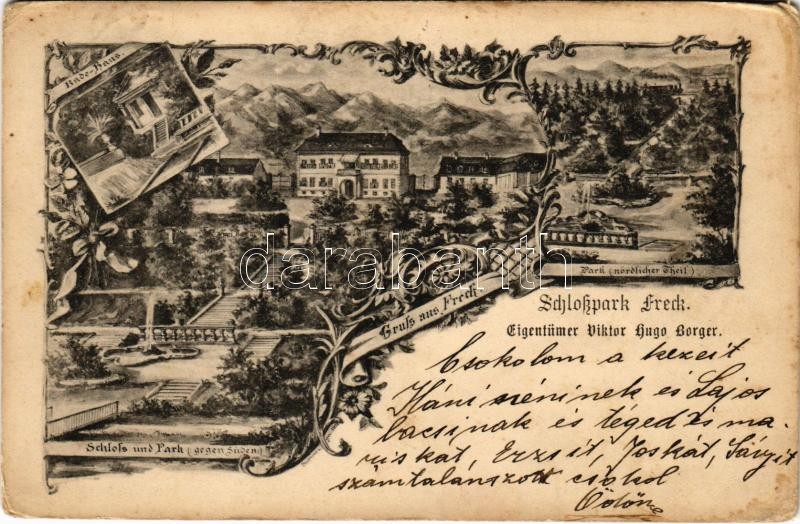 Bade-Haus.
Park (nördlicher Theil)
Gruß aus Freck
Schloßpark Freck.
Eigentümer Viktor Hugo Borger.
Schloss und Park (gegen Süden)
Csokolom a kezeit
Háni néninek és Lajos
bacsinak és téged és ma-
riskát, Erzsit, Joskát, Sáryit
számtalanszott csokol
Ödön
darabanth